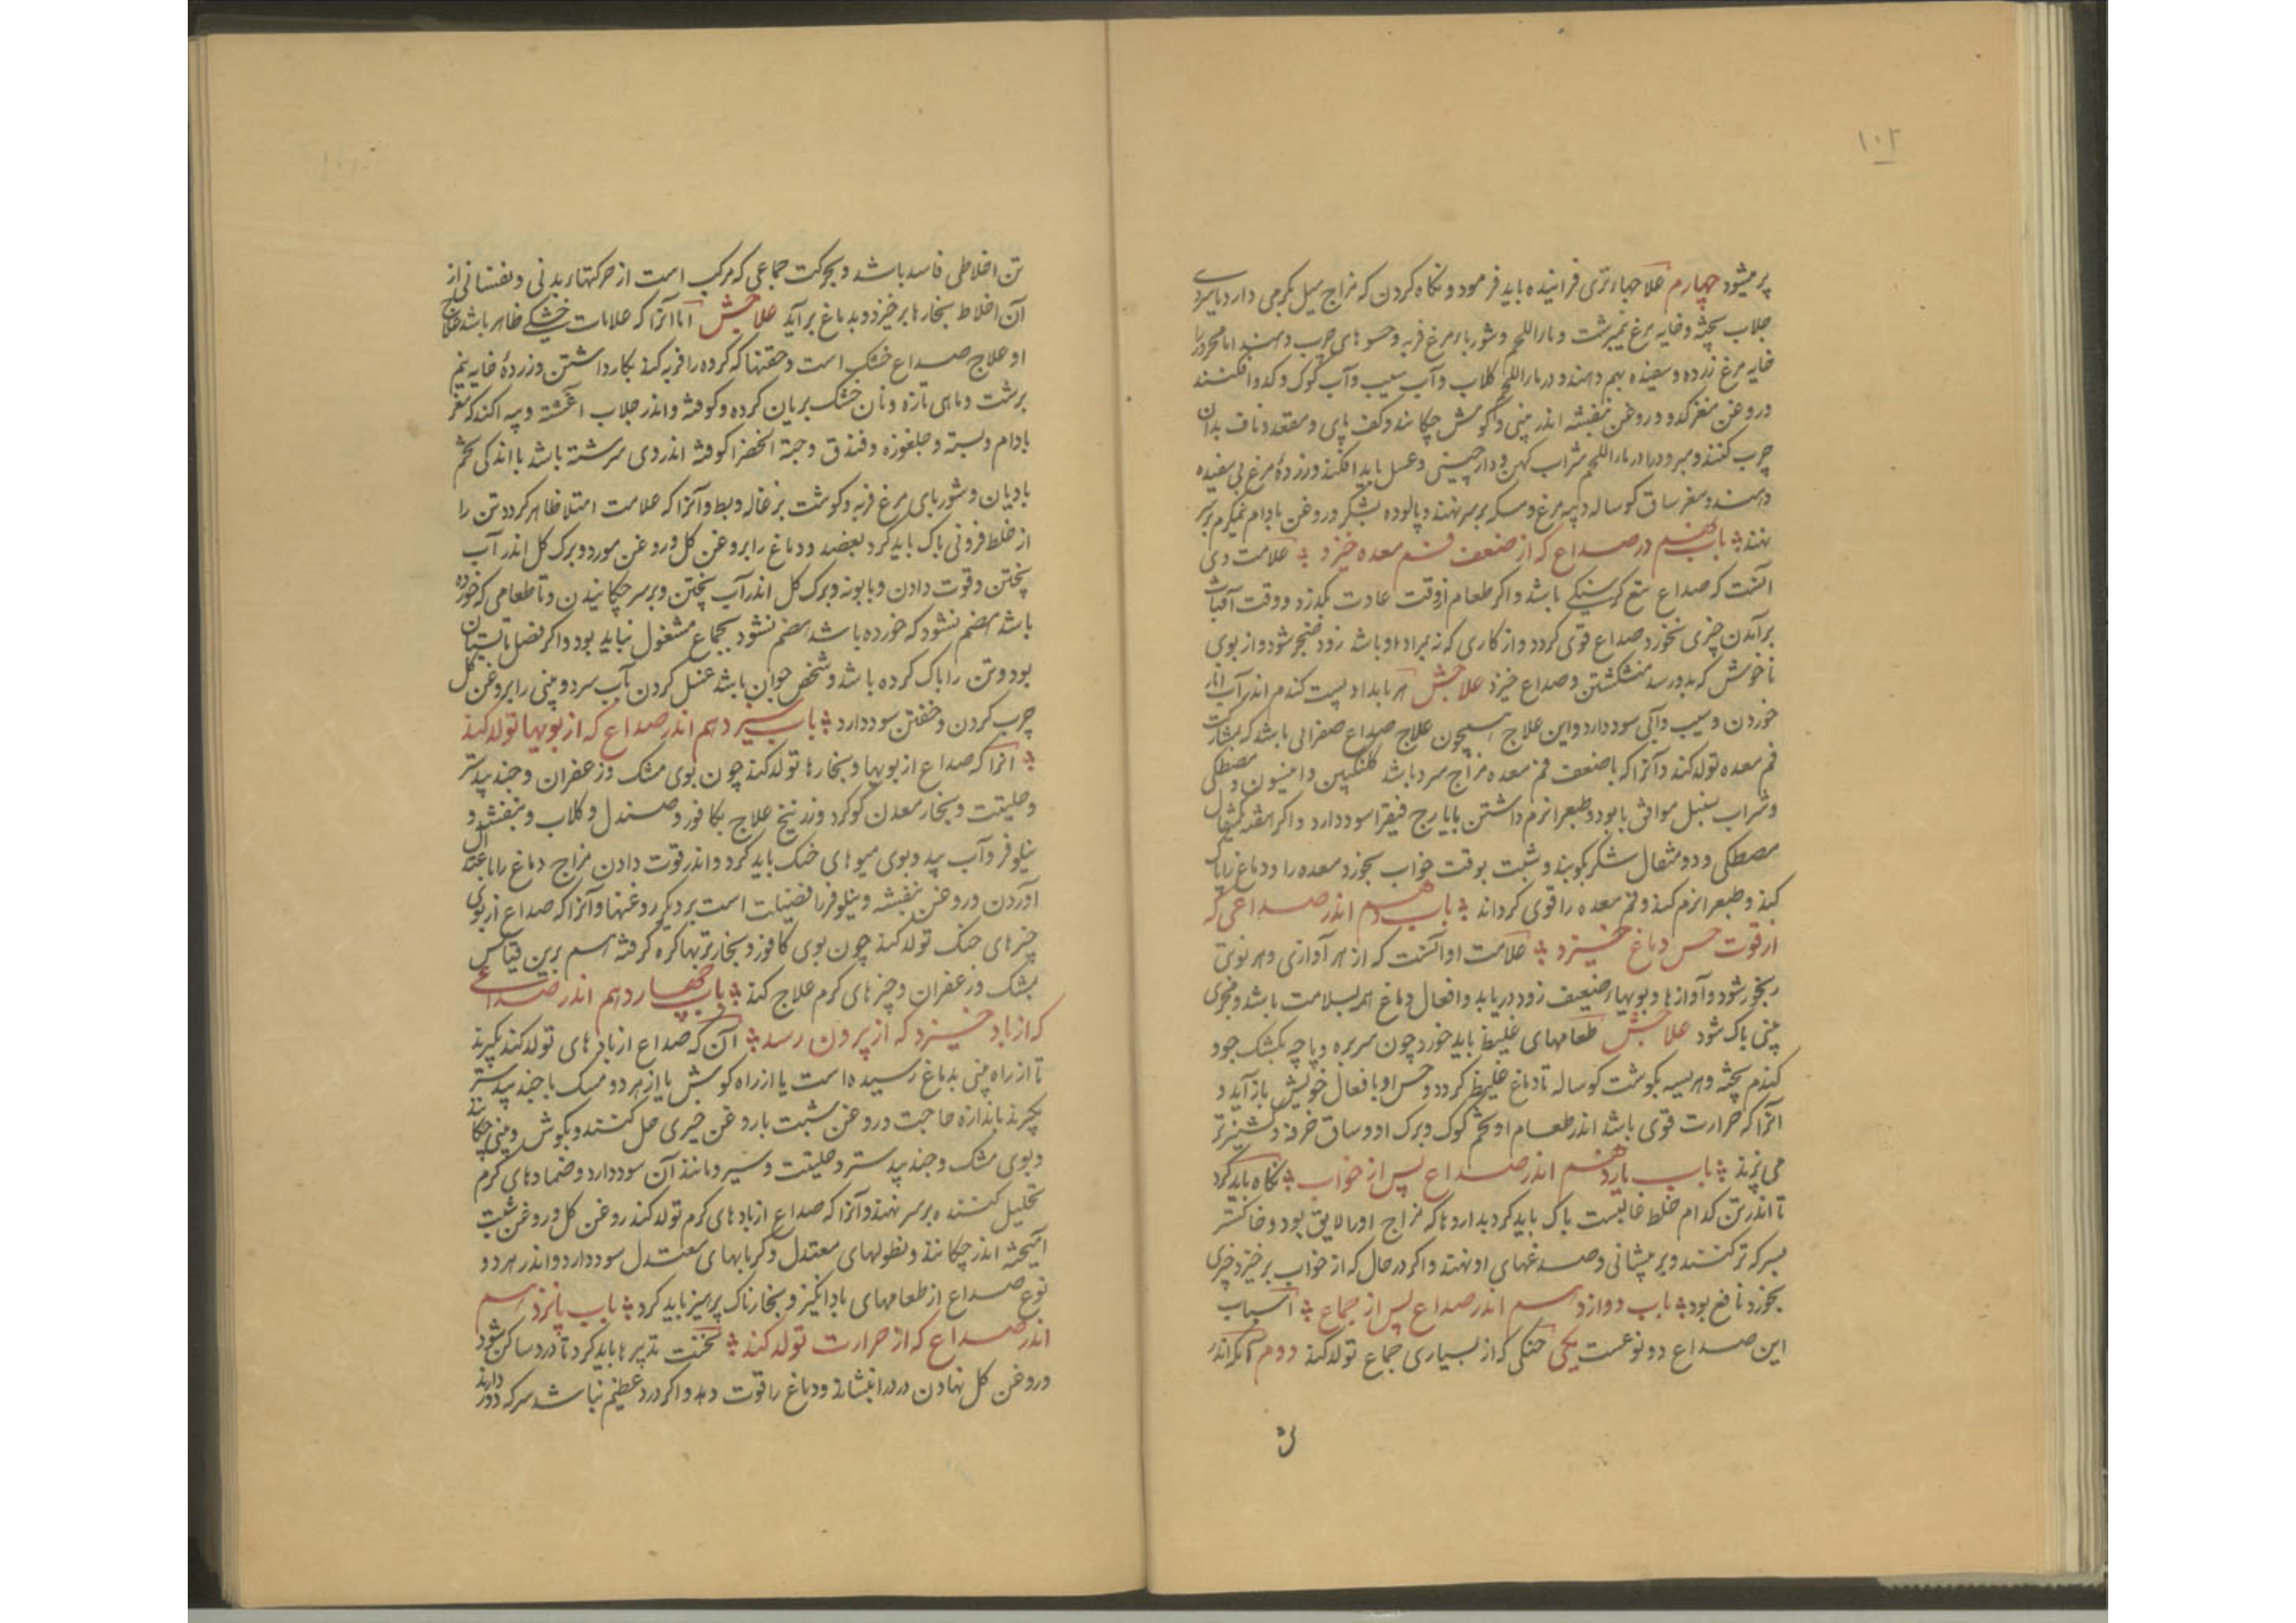 ۱۰۲
پر میشود چهارم علاجهاء تری فزاینده باید فرمود و نکاه کردن که مزاج میل بکرمی دارد یا بسردی
جلاب پخته و خایه مرغ نیمبرشت و ماء اللحم و شورباء مرغ فربه و حسوهای چرب دهند اما محرور را
خایه مرغ زرده و سفیده بهم دهند و در ماء اللحم کلاب و آب سیب و آب کوک و کدو افکنند
و روغن مغز کدو و روغن بنفشه اندر بینی و کوش چکانند و کف پای و مقعد و ناف بدان
چرب کنند و مبرود را در ماء اللحم شراب کهن و دارچینی و عسل باید افکند و زرده مرغ بی سفیده
دهند و مغز ساق کوساله و پیه مرغ و مسکه بر سر نهند و پالوده بشکر و روغن بادام نیمکرم بر سر
نهند باب نهم در صداع که از ضعف فم معده خیزد علامت وی
آنست که صداع تبع کرسنکی باشد و اکر طعام از وقت عادت بکذرد و وقت آفتاب
برآمدن چیزی نخورد صداع قوی کردد و از کاری که نه بمراد او باشد زود ضجر شود و از بوی
ناخوش که بدو رسد منشکشتن و صداع خیزد علاجش هر بامداد پست کندم اندر آب انار
خوردن و سیب و آبی سود دارد و این علاج همچون علاج صداع صفرائی باشد که بمشارکت
فم معده تولد کند و آنرا که با ضعف فم معده مزاج سرد باشد کلنکبین و انیسون و مصطکی
و شراب سنبل موافق بابود و طبع را نرم داشتن بایارج فیقرا سود دارد و اکر هفته یکمثقال
مصطکی و دو مثقال شکر بکوبند و شبت بوقت خواب بخورد معده را و دماغ را پاک
کند و طبع را نرم کند و فم معده را قوی کرداند باب دهم اندر صداعی که
از قوت حس دماغ خیزد علامت او آنست که از هر آوازی و هر بوئی
رنجور شود و آوازها و بویهاء ضعیف زود دریابد و افعال دماغ همه بسلامت باشد و مجری
بینی پاک شود علاجش طعامهای غلیظ باید خورد چون سر بره و پاچه بکشک جو و
کندم پخته و هریسه بکوشت کوساله تا دماغ غلیظ کردد و حس او بافعال خویش باز آید و
آنرا که حرارت قوی باشد اندر طعام او تخم کوک و برک او و ساق خرفه و کشنیز تر
می پزند باب یازدهم اندر صداع پس از خواب نکاه باید کرد
تا اندر تن کدام خلط غالبست پاک باید کرد بداروها که مزاج او را لایق بود و خاکستر
بسرکه تر کنند و بر پیشانی و صدغهای او نهند و اکر در حال که از خواب برخیزد چیزی
بخورد نافع بود باب دوازدهم اندر صداع پس از جماع اسباب
این صداع دو نوعست یکی خشکی که از بسیاری جماع تولد کند دوم آنکه اندر
تن اخلاطی فاسد باشد و بحرکت جماعی که مرکب است از حرکتهاء بدنی و نفسانی از
آن اخلاط بخارها برخیزد و بدماغ برآید علاجش اما آنرا که علامات خشکی ظاهر باشد علاج
او علاج صداع خشک است و حقنها که کرده را فربه کند بکار داشتن و زرده خایه نیم
برشت و ماهی تازه و نان خشک بریان کرده و کوفته و اندر جلاب آغشته و پیه اکند که مغز
بادام و پسته و جلغوزه و فندق و حبة الخضرا کوفته اندر وی سرشته باشد با اندکی تخم
بادیان و شوربای مرغ فربه و کوشت بزغاله و بط و آنرا که علامت امتلا ظاهر کردد تن را
از خلط فزونی پاک باید کرد بفصد و دماغ را بروغن کل و روغن مورد و برک کل اندر آب
پختن و قوت دادن و بابونه و برک کل اندر آب پختن و بر سر چکانیدن و تا طعامی که خورده
باشد هضم نشود که خورده باشد هضم نشود بجماع مشغول نباید بود و اکر فصل تابستان
بود و تن را پاک کرده باشد و شخص جوان باشد غسل کردن بآب سرد و بینی را بروغن کل
چرب کردن و خفتن سود دارد باب سیزدهم اندر صداع که از بویها تولد کند
آنرا که صداع از بویها و بخارها تولد کند چون بوی مشک و زعفران و جندبیدستر
و حلیتت و بخار معدن کوکرد و زرنیخ علاج بکافور و صندل و کلاب و بنفشه و
نیلوفر و آب بید و بوی میوهای خنک باید کرد و اندر قوت دادن مزاج دماغ را باعتدال
آوردن و روغن بنفشه و نیلوفر را فضیلت است بر دیکر روغنها و آنرا که صداع از بوی
چیزهای خنک تولد کند چون بوی کافور و بخار تربهاء کره کرفته هم برین قیاس
بمشک و زعفران و چیزهای کرم علاج کند باب چهاردهم اندر صداعی
که از باد خیزد که از بیرون رسد آن که صداع از بادهای تولد کند بنکرند
تا از راه بینی بدماغ رسیده است یا از راه کوش یا از هر دو مسک با جندبیدستر
بکیرند باندازه حاجت و روغن شبت یا روغن خیری حل کنند و بکوش و بینی چکانند
و بوی مشک و جندبیدستر و حلیتت و سیر و مانند آن سود دارد و ضمادهای کرم
تحلیل کننده بر سر نهند و آنرا که صداع از بادهای کرم تولد کند روغن کل و روغن شبت
آمیخته اندر چکانند و نطولهای معتدل و کرمابهای معتدل سود دارد و اندر هر دو
نوع صداع از طعامهای بادانکیز و بخارناک پرهیز باید کرد باب پانزدهم
اندر صداع که از حرارت تولد کند نخست تدبیرها باید کرد تا درد ساکن شود
و روغن کل نهادن درد را بنشاند و دماغ را قوت دهد و اکر درد عظیم نباشد سرکه دور دارند